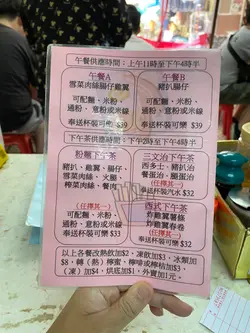 午餐供應時間：上午11時至下午4時半
午餐A
雪菜肉絲腸仔雞翼
可配麵、米粉、
通粉、意粉或米線
奉送杯裝可樂 $39
午餐B
豬扒腸仔
可配麵、米粉、
通粉、意粉或米線
奉送杯裝可樂 $39
下午茶供應時間：下午2時至下午4時半
粉麵下午茶
豬扒、雞翼、腸仔、
雪菜肉絲、火腿、
榨菜肉絲、餐肉
(任擇其一)
可配麵、米粉、
通粉、意粉或米線
奉送杯裝可樂 $33
文治下午茶
西多士、豬扒治
餐蛋治、腸蛋治
(任擇其一)
奉送杯裝汽水 $32
西式下午茶
炸雞翼薯條
炸雞翼春卷
(任擇其一)
奉送杯裝可樂 $32
以上各餐改熱飲加$2，凍飲加$3，冰類加
$8，轉（熱）檸蜜、檸啡或檸桔加$3、
（凍）加$4，烘底加$1，外賣加1元。